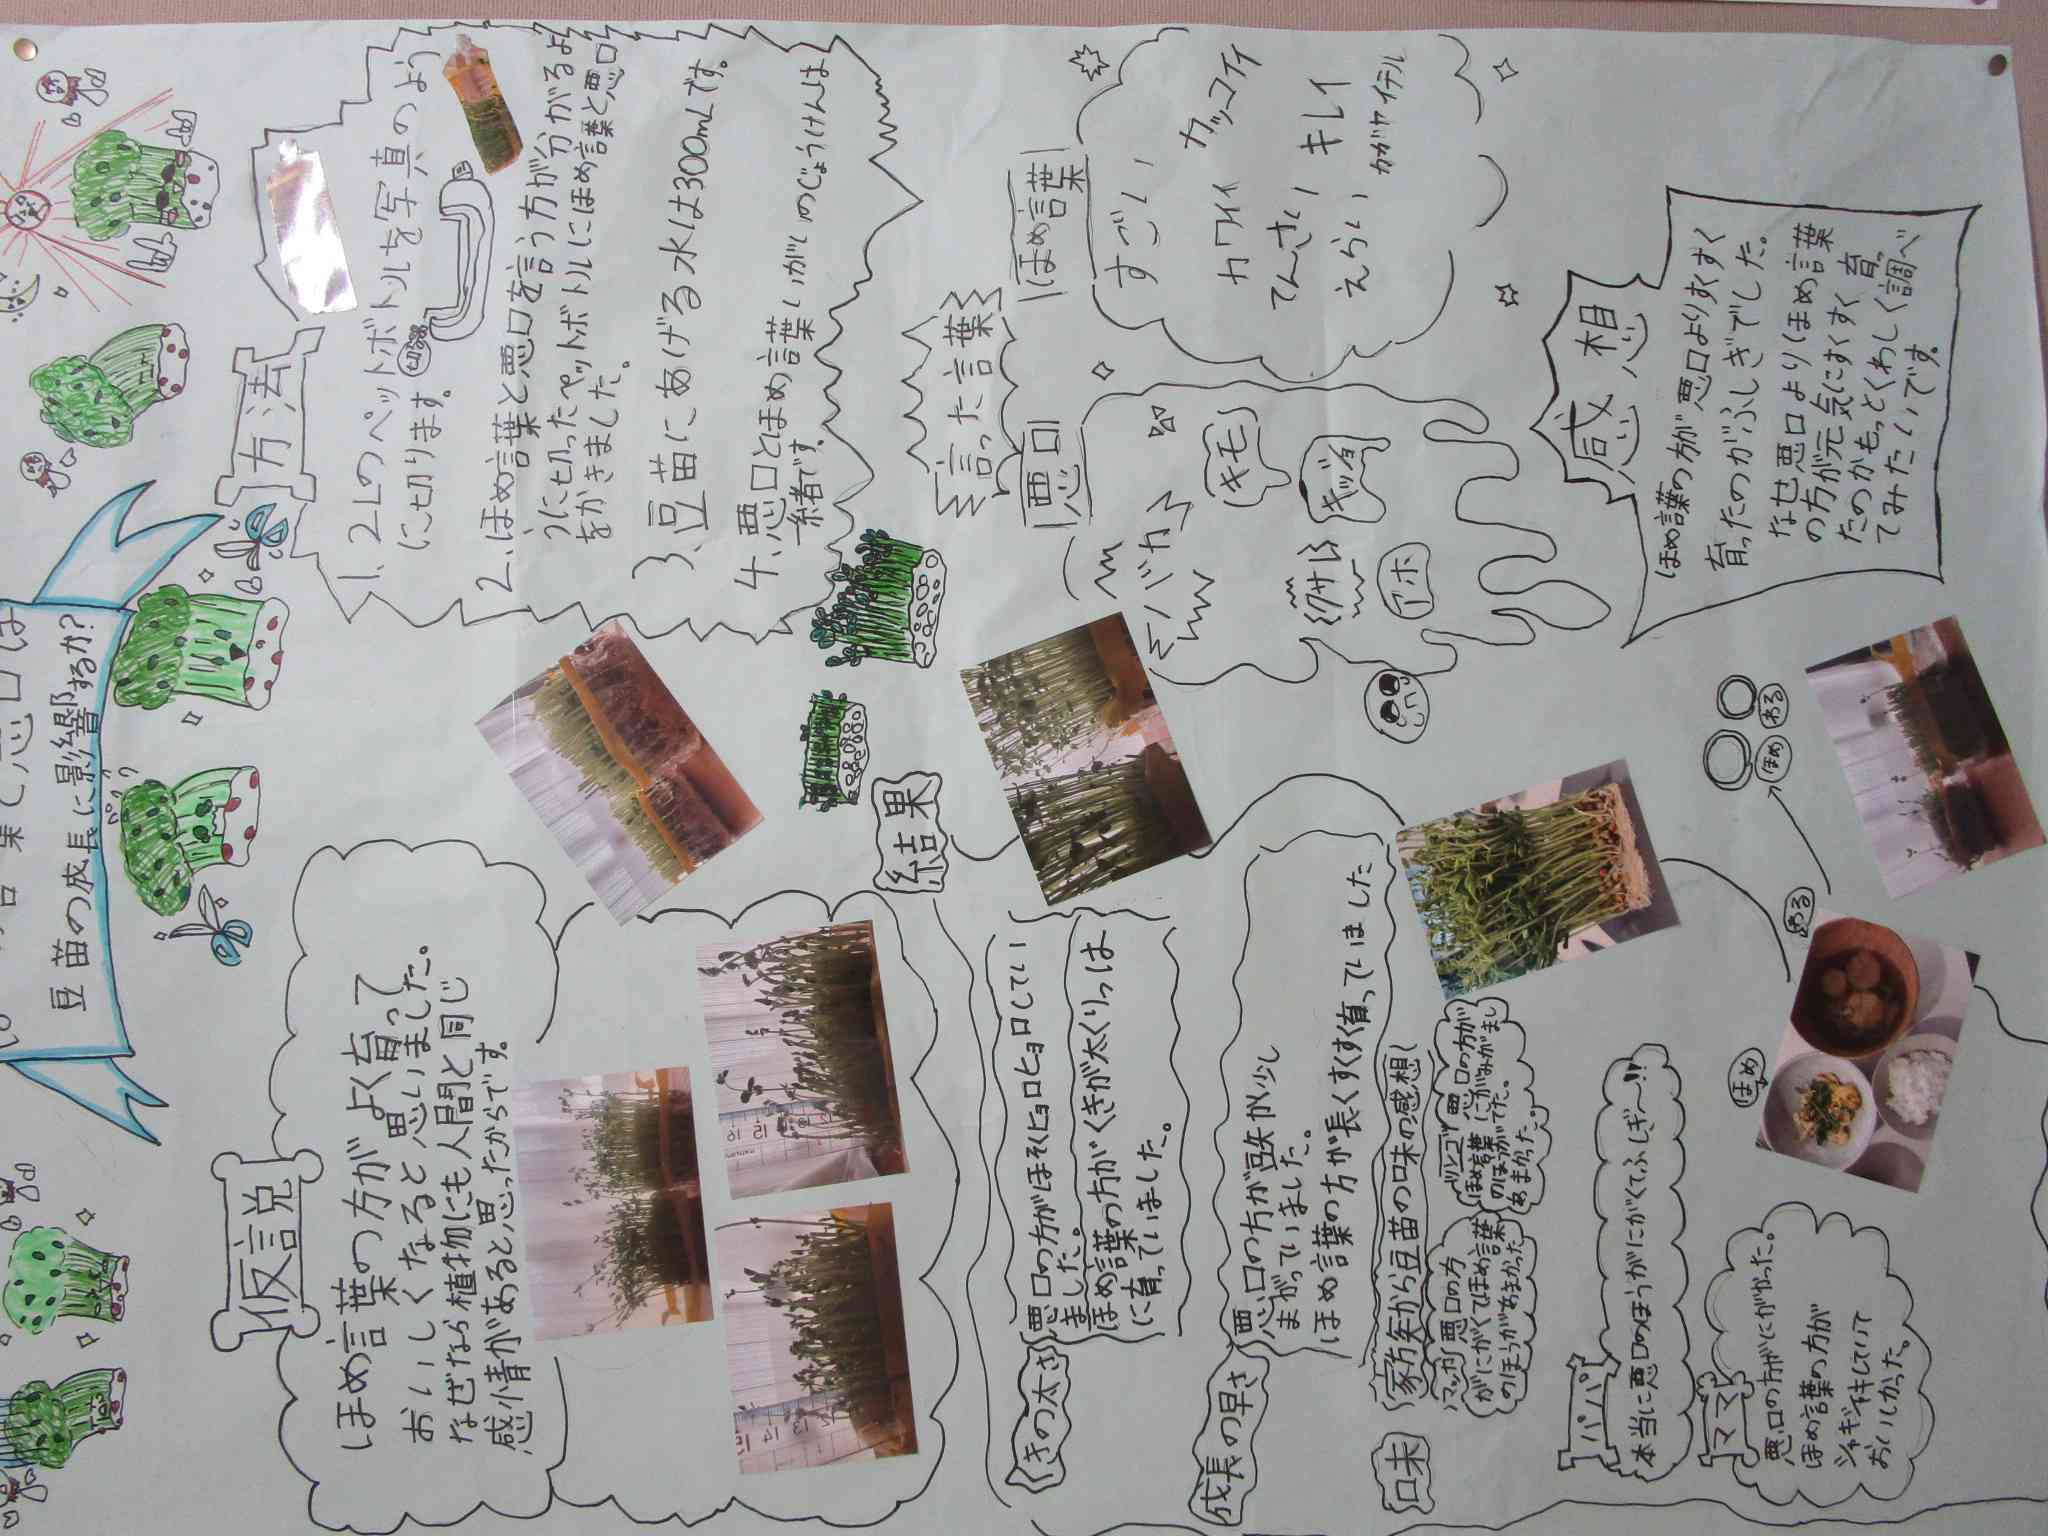 豆苗の成長に影響するか?
仮説
ほめ言葉の方がよく育って
おいしくなると思いました。
なぜなら植物にも人間と同じ
感情があると思ったからです。
方法
1. 2Lのペットボトルを写真のよう
に切ります。
2. ほめ言葉と悪口を言う方が分かるよ
うに切ったペットボトルにほめ言葉と悪口
をかきました。
3. 豆苗にあげる水は300mLです。
4. 悪口とほめ言葉いがいのじょうけんは
一緒です。
結果
くきの太さ
悪口の方がほそくヒョロヒョロしてい
ました。
ほめ言葉の方がくきが太くりっぱ
に育っていました。
成長の早さ
悪口の方が豆矢が少し
まがっていました。
ほめ言葉の方が長くすくすく育っていました
味
家族から豆苗の味の感想
悪口の方
がにがくてほめ言葉
のほうがあまかった
悪口の方が
ほめ言葉
にがみがまし
のほうが
あまかった。
パパ
本当に悪口のほうがにがくてふしぎ〜!!
ママ
悪口の方がにがかった。
ほめ言葉の方が
シャキシャキしていて
おいしかった。
ほめ
わる
ほめ
わる
言った言葉
悪口
バカ
キモ
クサ
キッショ
アホ
ほめ言葉
すごい
カッコイイ
カワイイ
てんさい
キレイ
えらい
カガヤイテル
感想
ほめ言葉の方が悪口よりすくすく
育ったのがふしぎでした。
なぜ悪口よりほめ言葉
の方が元気にすくすく育っ
たのかもっとくわしく調べ
てみたいです。